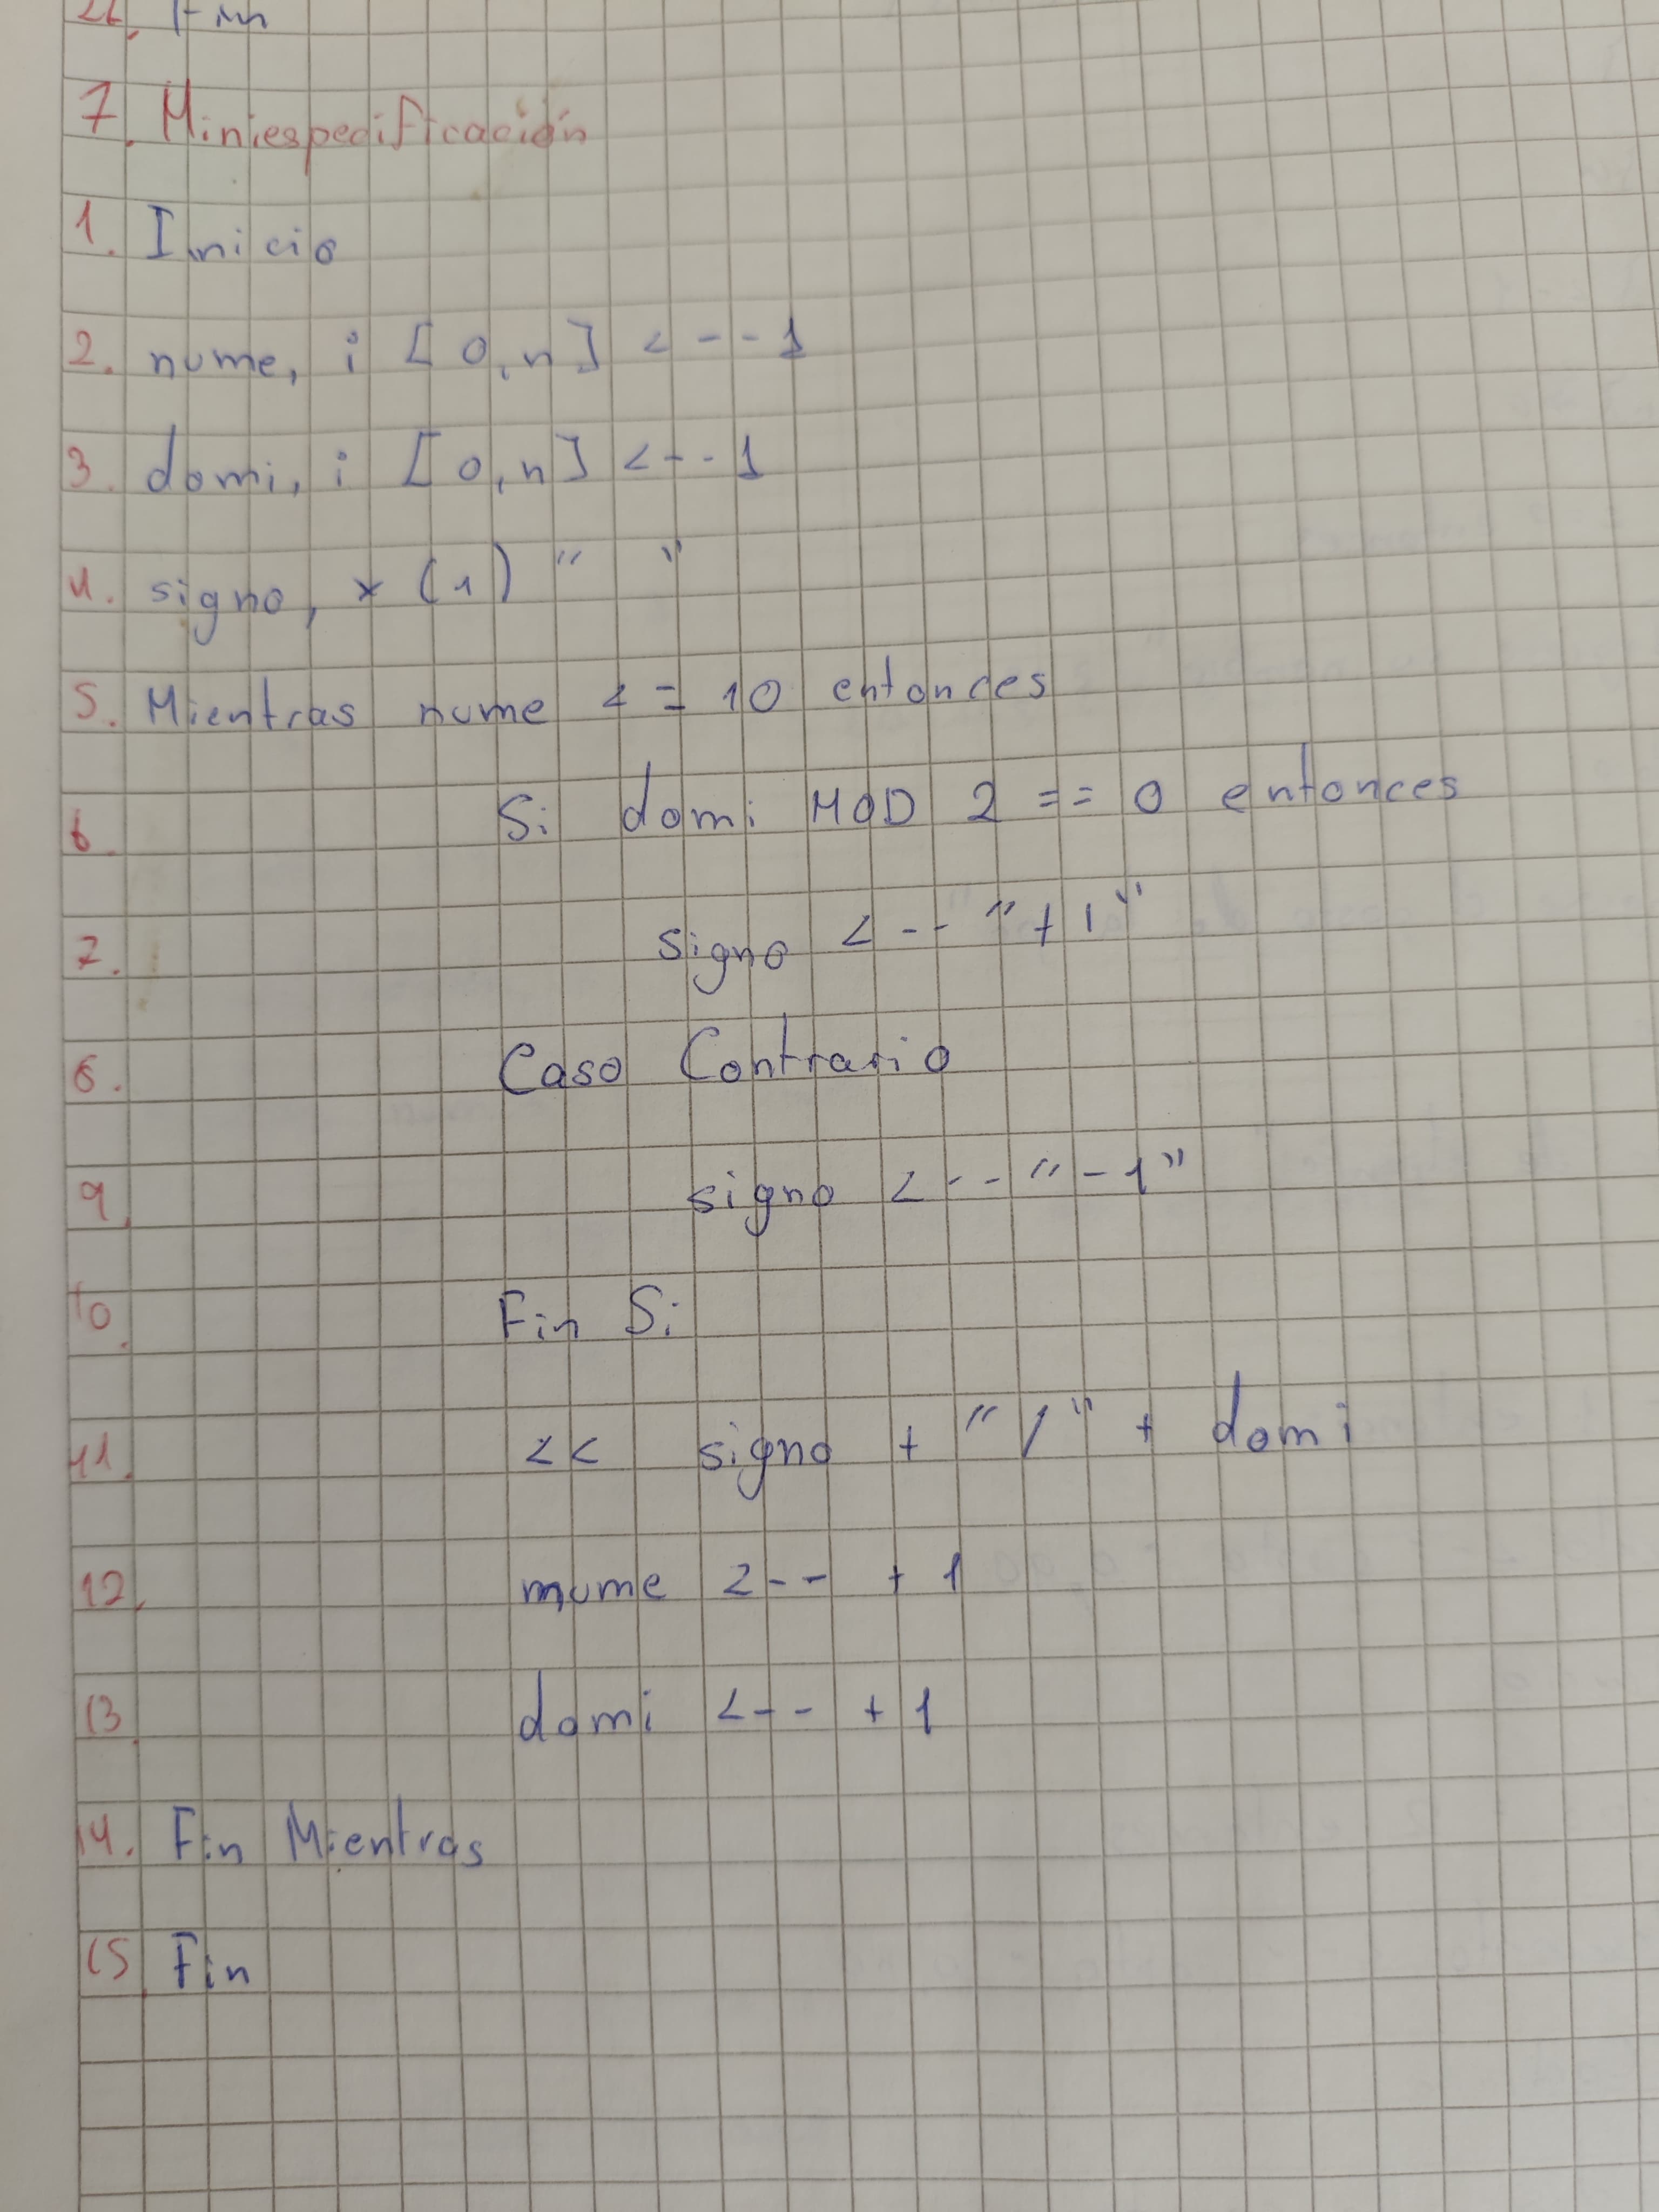 21. Fin
7. Miniespecificación
1. Inicio
2. nume, i [0,n] <--1
3. domi, i [0,n] <--1
4. signo, x (1) " "
5. Mientras nume <= 10 entonces
6. Si domi MOD 2 == 0 entonces
7. signo <-- "+1"
8. Caso Contrario
9. signo <-- "-1"
10. Fin Si
11. << signo + "/" + domi
12. nume <-- +1
13. domi <-- +1
14. Fin Mientras
15. Fin